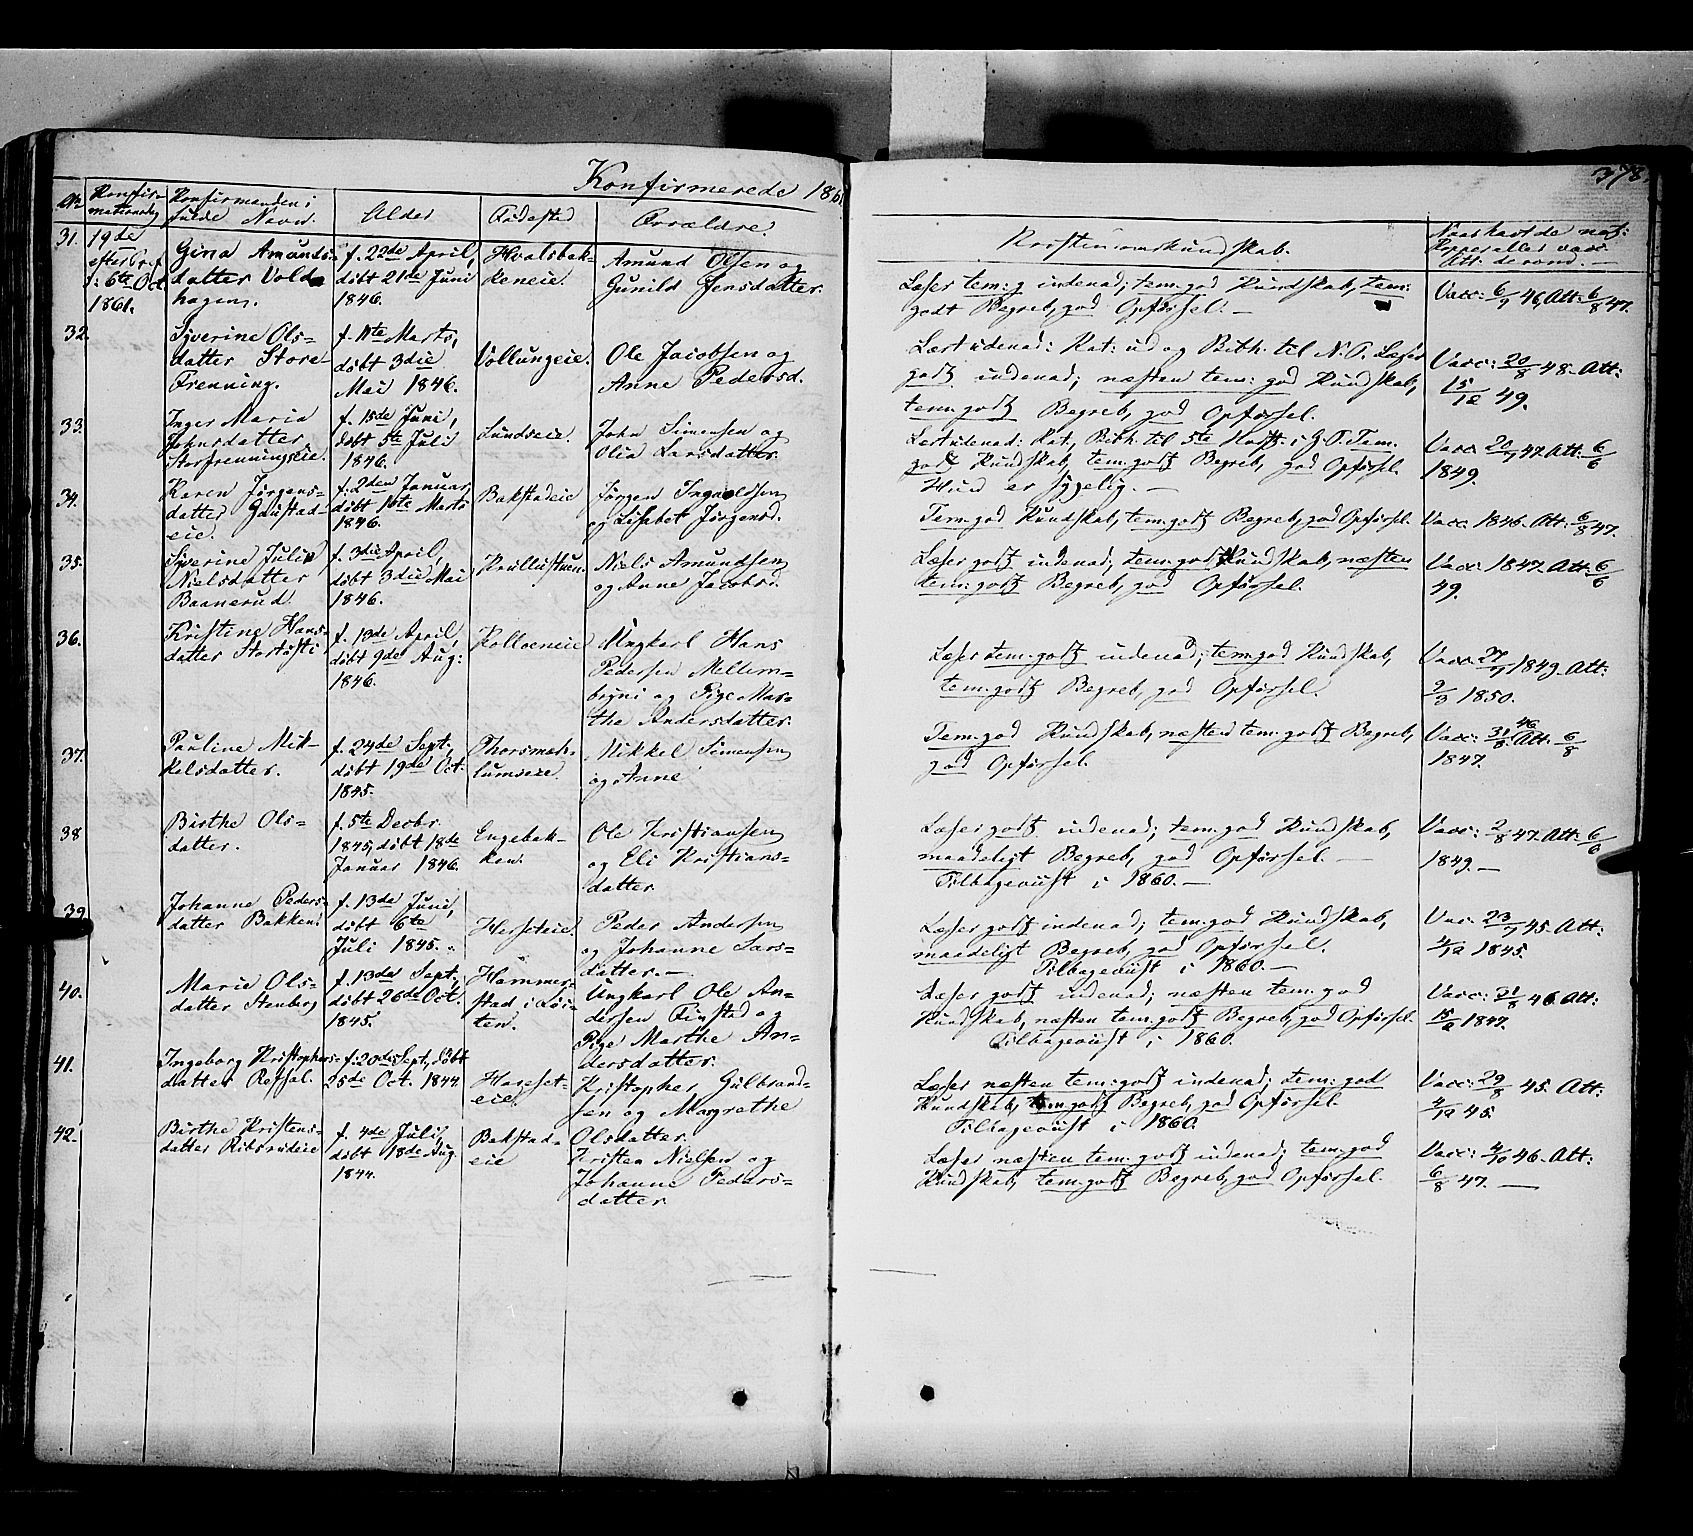 Konfirmerede 1861.
378.
No
Konfir-
mationsdag
Konfirmandens
fulde Navn.
Alder
Fødested
Forældre.
Kristendomskundskab.
Naar havt de nat:
Kopper eller vacc.
Att: derom. —
31.
19de
efter Tref.
f: 6te Oct
1861.
Gina Amunds-
datter Vold-
hagen.
f. 22de April,
døbt 21de Juni
1846.
Hvalsbak-
keneie.
Amund Olsen og
Gunild Jensdatter.
Læser tem: g indenad; tem. god Kundskab, tem:
godt Begreb, god Opførsel. —
Vacc: 6/7 46, Att: 6/8 47.
32.
Syverine Ols-
datter Store-
Frenning.
f. 11te Marts,
døbt 3die
Mai 1846.
Vollungeie.
Ole Jacobsen og
Anne Pedersd.
Læst udenad: Kat: ud og Bibh. til N. P. Læser
godt indenad; næsten tem: god Kundskab,
tem: godt Begreb, god Opførsel.
Vacc: 20/8 48. Att:
15/12 49.
33.
Inger Maria
Johnsdatter
Storfrenningeie.
f. 15de Juni,
døbt 5te Juli
1846.
Lundseie.
John Simensen og
Olia Larsdatter.
Læst udenad: Kat, Bibh. til 5te Hoft. i G. T. Tem.
godt Kundskab, tem. godt Begreb, god Opførsel.
Hun er sygelig. —
Vacc 20/7 47. Att: 6/6
1849.
34.
Karen Jørgens-
datter Gaustad-
eie.
f: 2den Januar,
døbt 1ste Marts
1846.
Bakstadeie
Jørgen Ingvoldsen
og Lisabet Jørgensd.
Tem. god Kundskab, tem. godt Begreb, god Opførsel.
Vacc: 1846. Att: 6/8 47.
35.
Syverine Julie
Nielsdatter
Baanerud.
f. 3die April,
døbt 3die Mai
1846.
Krollistuen.
Niels Amundsen
og Anne Jacobsd.
Læser godt indenad; tem. godt Kundskab, næsten
tem: godt Begreb, god Opførsel.
Vacc: 1847. Att: 6/6
49.
36.
Kristine Hans-
datter Stortøsti
f. 13de April,
døbt 9de Aug:
1846.
Kolloeneie
Ungkarl Hans
Pedersen Mellem-
bryni og Pige Mar-
the Andersdatter.
Læser tem. godt indenad; tem. god Kundskab,
tem. godt Begreb, god Opførsel.
Vacc: 27/7 1849. Att:
2/3 1850.
37.
Pauline Mik-
kelsdatter.
f. 24de Sept.,
døbt 19de Oct.
1845.
Thorsmoh-
lumseie.
Mikkel Simensen
og Anne
Tem. god Kundskab, næsten tem. godt Begreb,
god Opførsel.
Vacc: 31/8 46 Att: 6/8
1847.
38
Birthe Ols-
datter.
f. 5te Decbr.
1845, døbt 18de
Januar 1846.
Engebak-
ken.
Ole Kristiansen
og Eli Kristians-
datter.
Læser godt indenad; tem. god Kundskab,
maadeligt Begreb, god Opførsel. —
Tilbageviist i 1860. —
Vacc: 2/8 47. Att: 6/6
1849. —
39
Johanne Peders-
datter Bakken.
f. 13de Juni,
døbt 6te
Juli 1845.
Herseteie.
Peder Andersen
og Johanne Lars-
datter. —
Læser godt indenad; tem. god Kundskab,
maadeligt Begreb, god Opførsel.
Tilbageviist i 1860. —
Vac. 23/7 45. Att:
4/12 1845.
40.
Marie Ols-
datter Stenberg
f. 13de Sept.,
døbt 26de Oct.
1845.
Hammer-
stad i Løi-
ten.
Ungkarl Ole An-
dersen Finsted og
Pige Marthe An-
dersdatter.
Læser godt indenad; næsten tem. god
Kundskab, næsten tem. godt Begreb, god Opførsel.
Tilbageviist i 1860.
Vacc: 31/8 46. Att:
15/2 1847.
41.
Ingeborg Kristophers-
datter Refsal.
f. 20de Sept., døbt
25de Oct. 1844.
Hareset-
eie.
Kristopher Gulbrand-
sen og Margrethe
Olsdatter.
Læser næsten tem: godt indenad; tem: god
Kundskab, tem. godt Begreb, god Opførsel.
Tilbageviist i 1860.
Vacc: 29/8 45. Att:
4/12 45.
42.
Birthe Kristens-
datter Ribsrudeie
f. 4de Juli,
døbt 18de Aug.
1844.
Bakstad-
eie
Kristen Nielsen og
Johanne Peders-
datter.
Læser næsten tem. godt indenad; tem. god
Kundskab, tem. godt Begreb, god Opførsel.
Vacc: 4/10 46. Att:
6/8 47. —